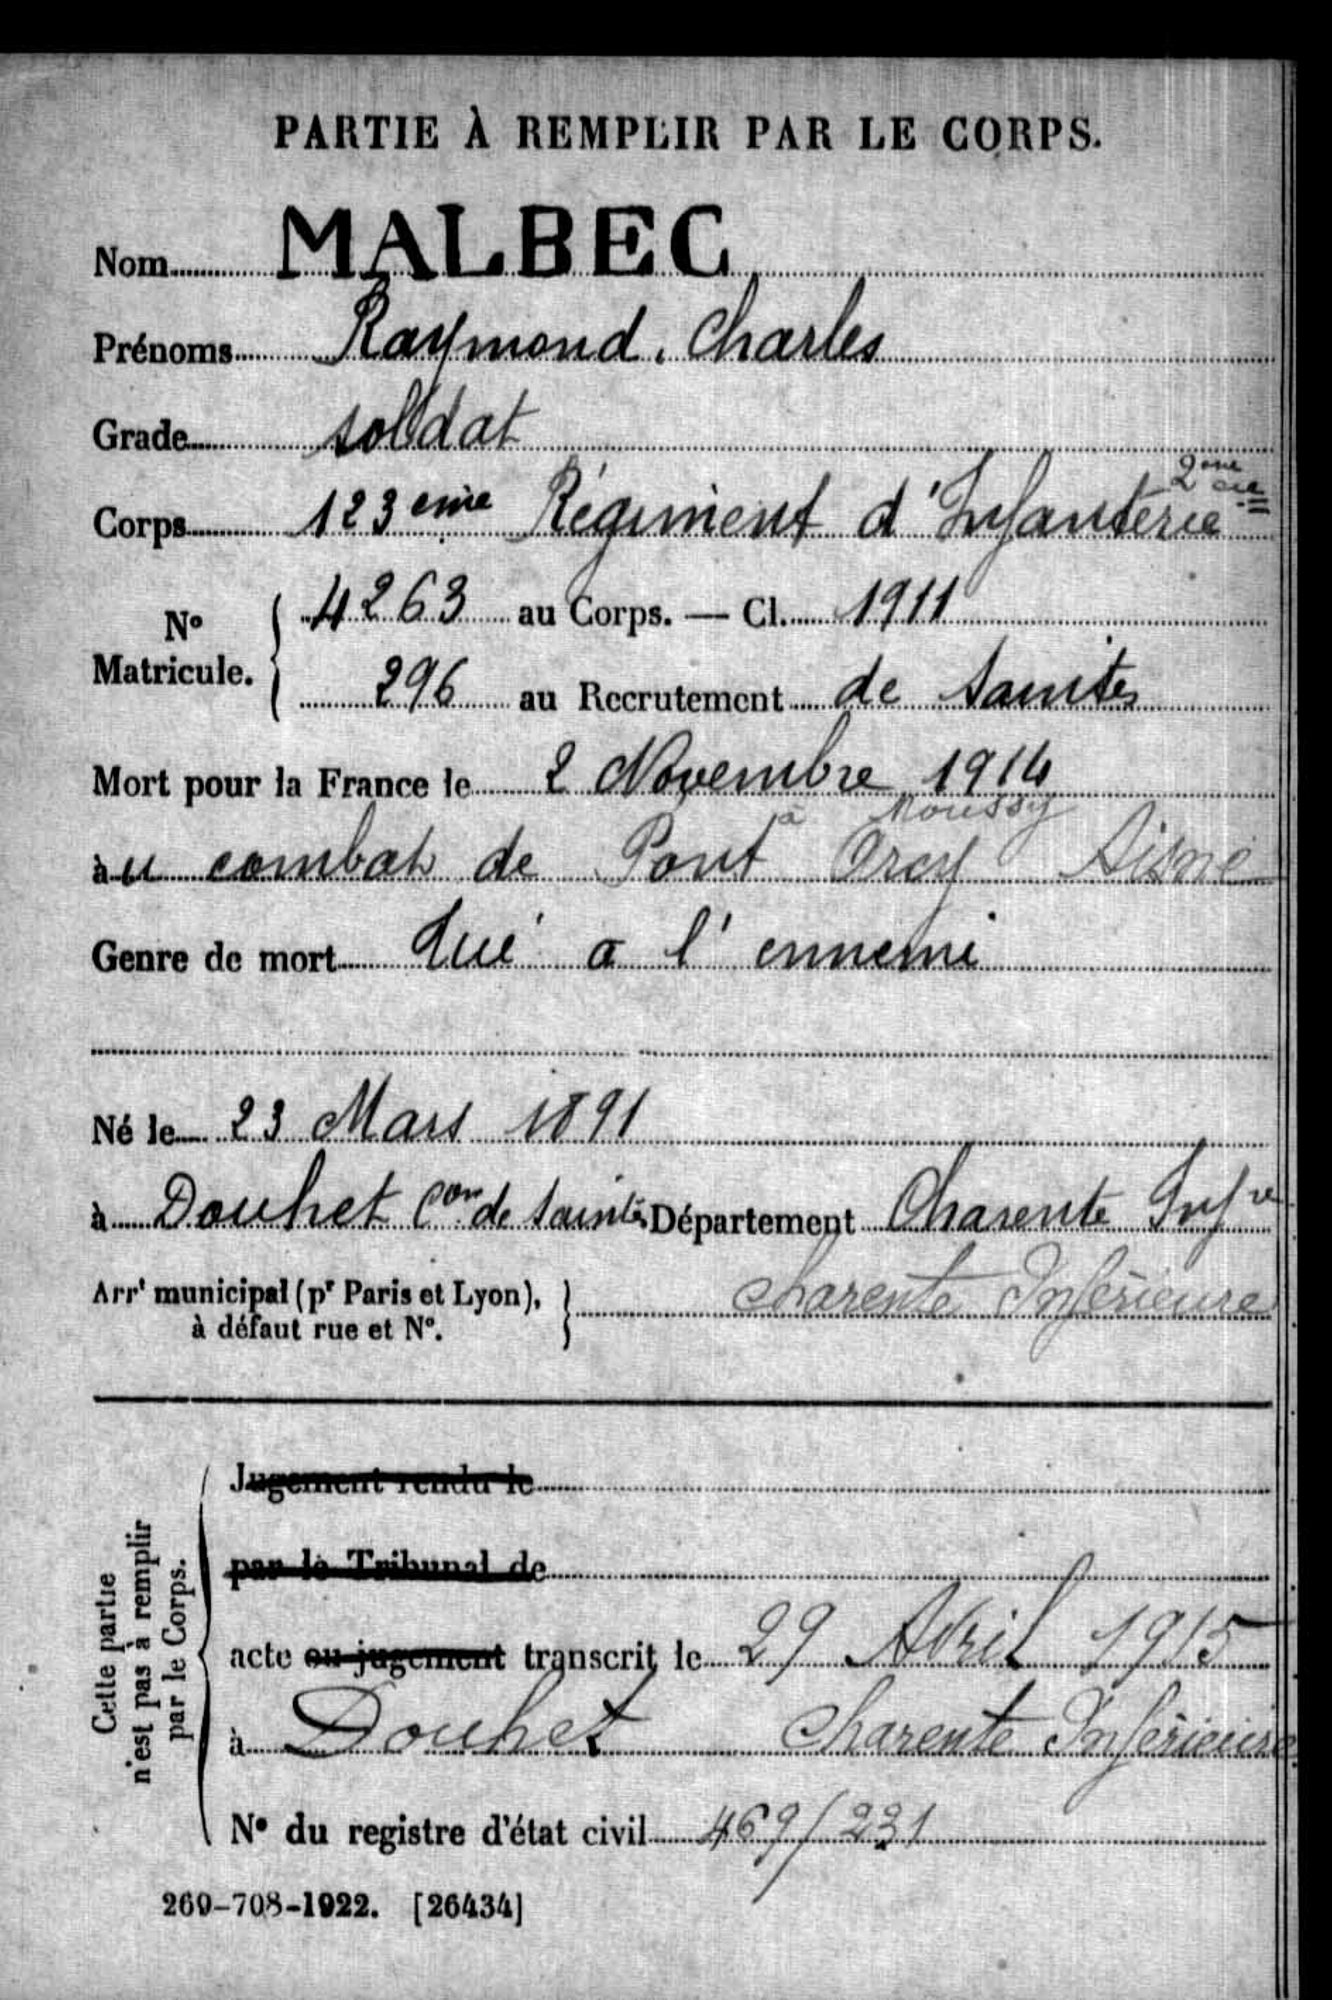 PARTIE À REMPLIR PAR LE CORPS.
Nom MALBEC
Prénoms Raymond, Charles
Grade soldat
2ème cie
Corps 123ème Régiment d'Infanterie
N° Matricule. 4263 au Corps. — Cl. 1911
296 au Recrutement de Saintes
Mort pour la France le 2 Novembre 1914
à Moussy
au combat de Pont Arcy Aisne
Genre de mort Tué a l'ennemi
Né le 23 Mars 1891
à Douhet Con de Saintes Département Charente Infre
Arrt municipal (pr Paris et Lyon), à défaut rue et N°. Charente Inférieure
Cette partie n'est pas à remplir par le Corps.
Jugement rendu le
par le Tribunal de
acte ou jugement transcrit le 29 Avril 1915
à Douhet Charente Inférieure
N° du registre d'état civil 469/231
269-708-1922. [26434]